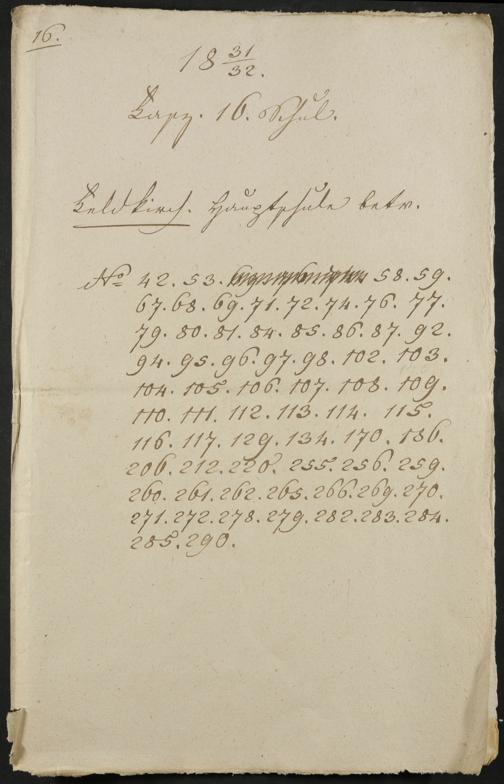 16.
18 31/32.
16. Schul.
Feldkirch. Hauptschule betr.
No 42. 53. 58. 59.
67. 68. 69. 71. 72. 74. 76. 77.
79. 80. 81. 84. 85. 86. 87. 92.
94. 95. 96. 97. 98. 102. 103.
104. 105. 106. 107. 108. 109.
110. 111. 112. 113. 114. 115.
116. 117. 129. 134. 170. 186.
206. 212. 220. 255. 256. 259.
260. 261. 262. 265. 266. 269. 270.
271. 272. 278. 279. 282. 283. 284.
285. 290.